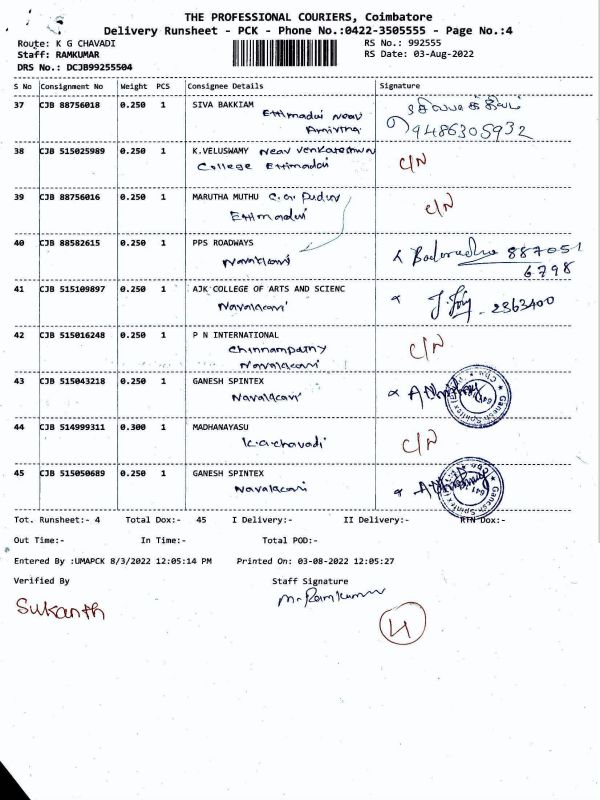 THE PROFESSIONAL COURIERS, Coimbatore
Delivery Runsheet - PCK - Phone No.:0422-3505555 - Page No.:4
Route: K G CHAVADI RS No.: 992555
Staff: RAMKUMAR RS Date: 03-Aug-2022
DRS No.: DCJB99255504
S No Consignment No Weight PCS Consignee Details Signature
37 CJB 88756018 0.250 1 SIVA BAKKIAM
Ettimadai Near
9486305932
38 CJB 515025989 0.250 1 K.VELUSWAMY Near
College Ettimadai C/N
39 CJB 88756016 0.250 1 MARUTHA MUTHU C.G. Pudur C/N
Ettimadai
40 CJB 88582615 0.250 1 PPS ROADWAYS
Navakkarai 887051
6798
41 CJB 515109897 0.250 1 AJK COLLEGE OF ARTS AND SCIENC
Navakkarai 2363400
42 CJB 515016248 0.250 1 P N INTERNATIONAL
Chinnampathy C/N
Navakkarai
43 CJB 515043218 0.250 1 GANESH SPINTEX
Navakkarai
44 CJB 514999311 0.300 1 MADHANAYASU
K.G.Chavadi C/N
45 CJB 515050689 0.250 1 GANESH SPINTEX
Navakkarai
Tot. Runsheet:- 4 Total Dox:- 45 I Delivery:- II Delivery:- RTN Dox:-
Out Time:- In Time:- Total POD:-
Entered By :UMAPCK 8/3/2022 12:05:14 PM Printed On: 03-08-2022 12:05:27
Verified By Staff Signature
Sukanth M. Ramkumar
4